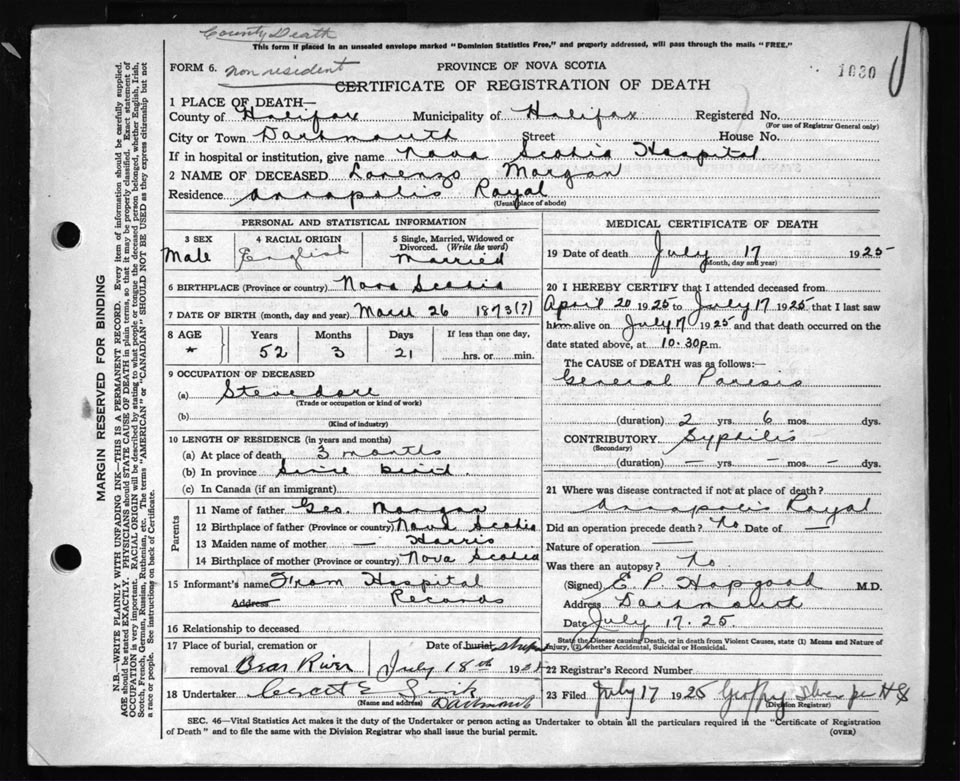 County Death
This form if placed in an unsealed envelope marked "Dominion Statistics Free," and properly addressed, will pass through the mails "FREE."
FORM 6. non resident PROVINCE OF NOVA SCOTIA 1030
CERTIFICATE OF REGISTRATION OF DEATH
1 PLACE OF DEATH—
County of Halifax Municipality of Halifax Registered No.
(For use of Registrar General only)
City or Town Dartmouth Street House No.
If in hospital or institution, give name Nova Scotia Hospital
2 NAME OF DECEASED Lorenzo Morgan
Residence Annapolis Royal
(Usual place of abode)
PERSONAL AND STATISTICAL INFORMATION
3 SEX 4 RACIAL ORIGIN 5 Single, Married, Widowed or Divorced. (Write the word)
Male English Married
6 BIRTHPLACE (Province or country) Nova Scotia
7 DATE OF BIRTH (month, day and year) March 26 1873(?)
8 AGE Years Months Days If less than one day,
* 52 3 21 hrs. or min.
9 OCCUPATION OF DECEASED
(a) Stevedore
(Trade or occupation or kind of work)
(b)
(Kind of industry)
10 LENGTH OF RESIDENCE (in years and months)
(a) At place of death 3 months
(b) In province Since birth
(c) In Canada (if an immigrant)
Parents
11 Name of father Geo. Morgan
12 Birthplace of father (Province or country) Nova Scotia
13 Maiden name of mother — Harris
14 Birthplace of mother (Province or country) Nova Scotia
15 Informant's name From Hospital
Address Records
16 Relationship to deceased
17 Place of burial, cremation or Date of burial
removal Bear River July 18th 192
18 Undertaker
(Name and address) Dartmouth
MEDICAL CERTIFICATE OF DEATH
19 Date of death July 17 1925
(Month, day and year)
20 I HEREBY CERTIFY that I attended deceased from
April 20 1925 to July 17 1925 that I last saw
him alive on July 17 1925 and that death occurred on
date stated above, at 10.30 p.m.
The CAUSE of DEATH was as follows:
General Paresis
(duration) 2 yrs. 6 mos. dys.
CONTRIBUTORY Syphilis
(Secondary)
(duration) — yrs. — mos. — dys.
21 Where was disease contracted if not at place of death?
Annapolis Royal
Did an operation precede death? No Date of —
Nature of operation —
Was there an autopsy? No
(Signed) E. P. Hopgood M.D.
Address Dartmouth
Date July 17. 25
State the Disease causing Death, or in death from Violent Causes, state (1) Means and Nature of Injury, (2) whether Accidental, Suicidal or Homicidal.
22 Registrar's Record Number
23 Filed July 17 1925
(Division Registrar)
SEC. 46—Vital Statistics Act makes it the duty of the Undertaker or person acting as Undertaker to obtain all the particulars required in the "Certificate of Registration
of Death" and to file the same with the Division Registrar who shall issue the burial permit. (OVER)
MARGIN RESERVED FOR BINDING
N.B.—WRITE PLAINLY WITH UNFADING INK—THIS IS A PERMANENT RECORD. Every item of information should be carefully supplied.
AGE should be stated EXACTLY. PHYSICIANS should STATE CAUSE OF DEATH in plain terms, so that it may be properly classified. Exact statement of
OCCUPATION is very important. RACIAL ORIGIN will be described by stating to what people or tongue the deceased person belonged, whether English, Irish,
Scotch, French, German, Russian, Ruthenian, etc. The terms "AMERICAN" or "CANADIAN" SHOULD NOT BE USED as they express citizenship but not
a race or people. See instructions on back of Certificate.